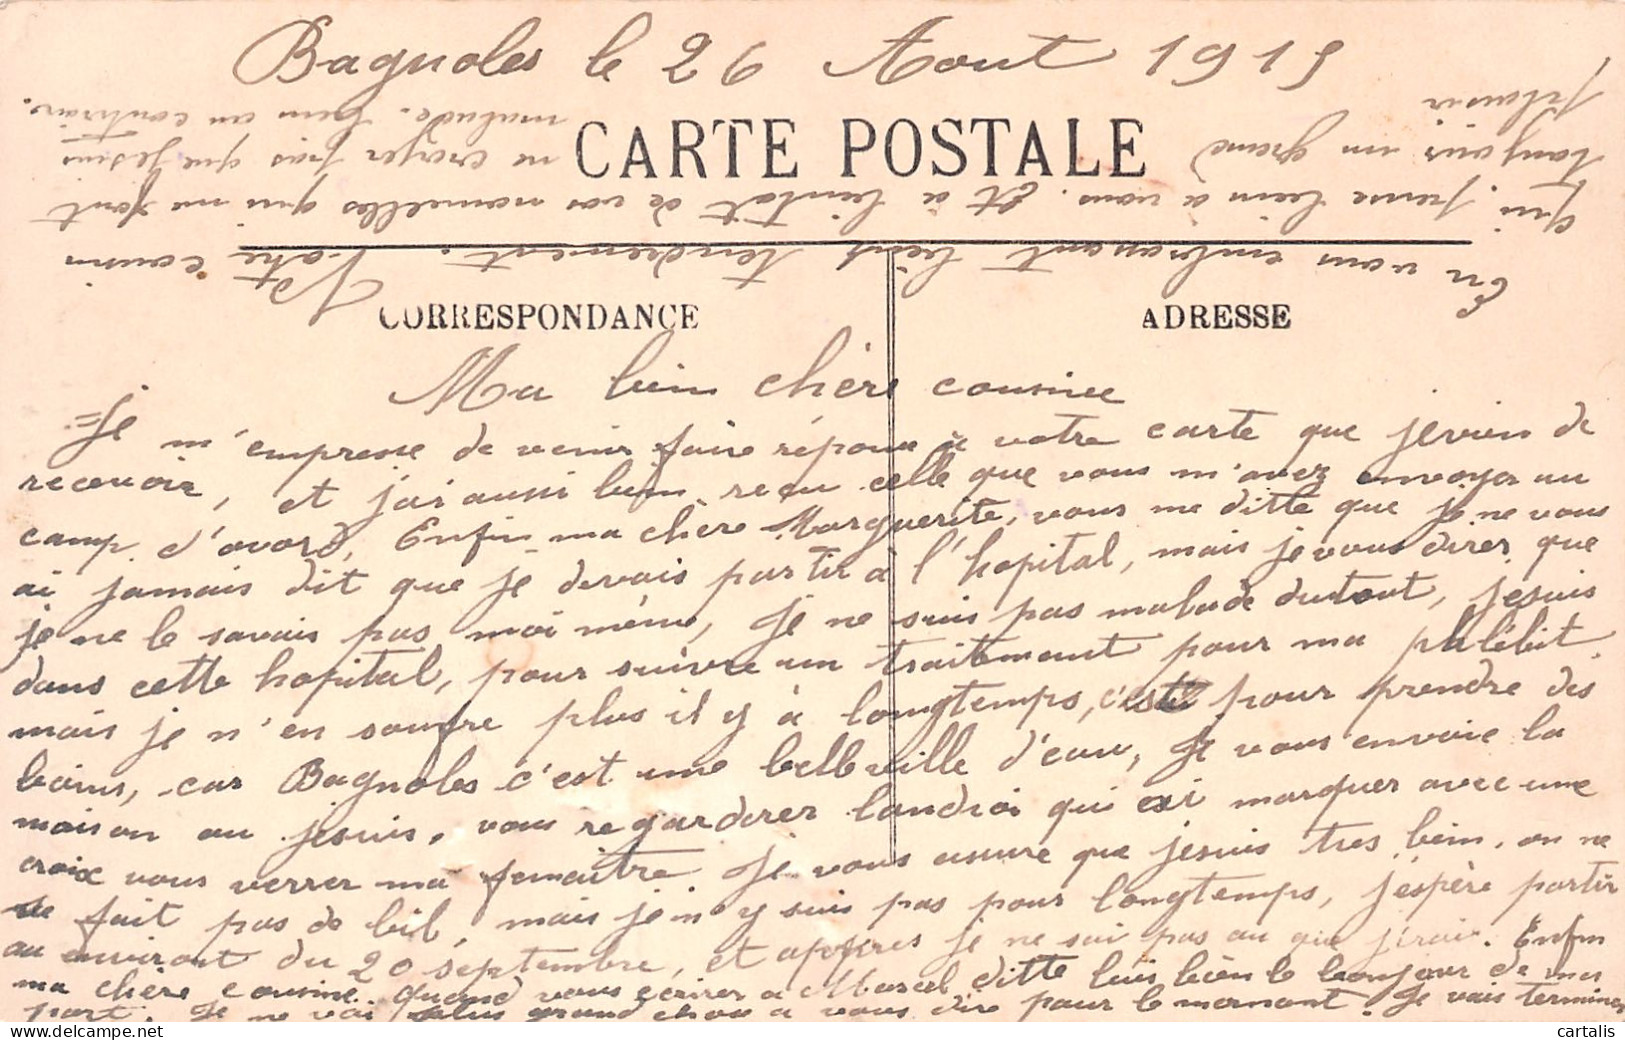 Bagnoles le 26 Aout 1915
CARTE POSTALE
CORRESPONDANCE
ADRESSE
Ma bien chère cousine
Je m'empresse de venir faire réponse à votre carte que jevien de
recevoir, et j'ai aussi bien reçu celle que vous m'avez envoyer au
camp d'avord, Enfin ma chère Marguerite, vous me ditte que je ne vous
ai jamais dit que je devais partir à l'hopital, mais je vous direr que
je ne le savais pas moi même, Je ne suis pas malade dutout, jesuis
dans cette hopital, pour suivre un traitement pour ma phlébit.
mais je n'en soufre plus il y à longtemps, c'est pour prendre des
bains, car Bagnoles c'est une belle ville d'eau, Je vous envoie la
maison au jesuis, vous regarderer landroi qui est marquer avec une
croix vous verrer ma fenaitre. Je vous assure que jesuis tres bien, on ne
se fait pas de bil, mais je n'y suis pas pour longtemps, j'espère partir
au environt du 20 septembre, et appres je ne sai pas au que j'irai. Enfin
ma chère cousine quand vous écrirer a Marcel ditte luis bien le bonjour de ma
part. Je ne voi plus grand chose a vous dire pour le mornant. Je vais terminer
En vous embrassant bien tendrement. Votre cousin
qui pense bien a vous. Et a bientot de vos nouvelles qui me font
toujours un grand
plaisir
ne croyer pas que jesuis
malade. bien au contraire.
cartalis